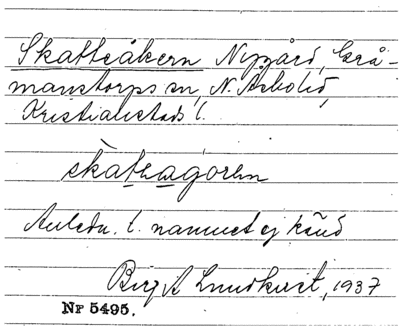 Skatteåkern Nygård, Grå-
manstorps sn, N. Åsbo hd,
Kristianstads l.
Anledn. t. namnet ej känd
Birgit Lundkvist, 1937
Nr 5495.